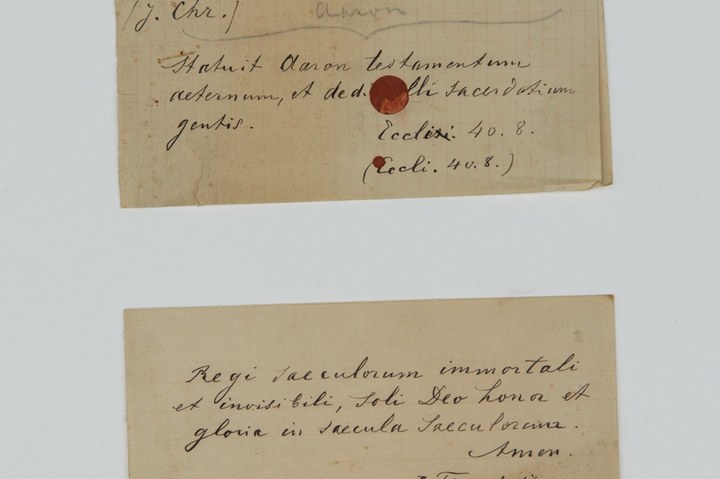 (J. Chr.)
Aaron
Statuit Aaron testamentum
aeternum, et ded. lli sacerdotium
gentis.
Eccli. 40. 8.
(Eccli. 40. 8.)
Regi saeculorum immortali
et invisibili, soli Deo honor et
gloria in saecula saeculorum.
Amen.